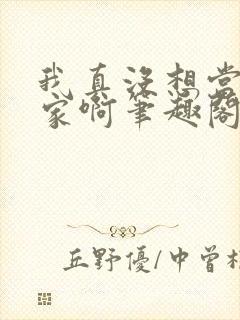 我真没想当
家啊笔趣阁
丘野優/中曽